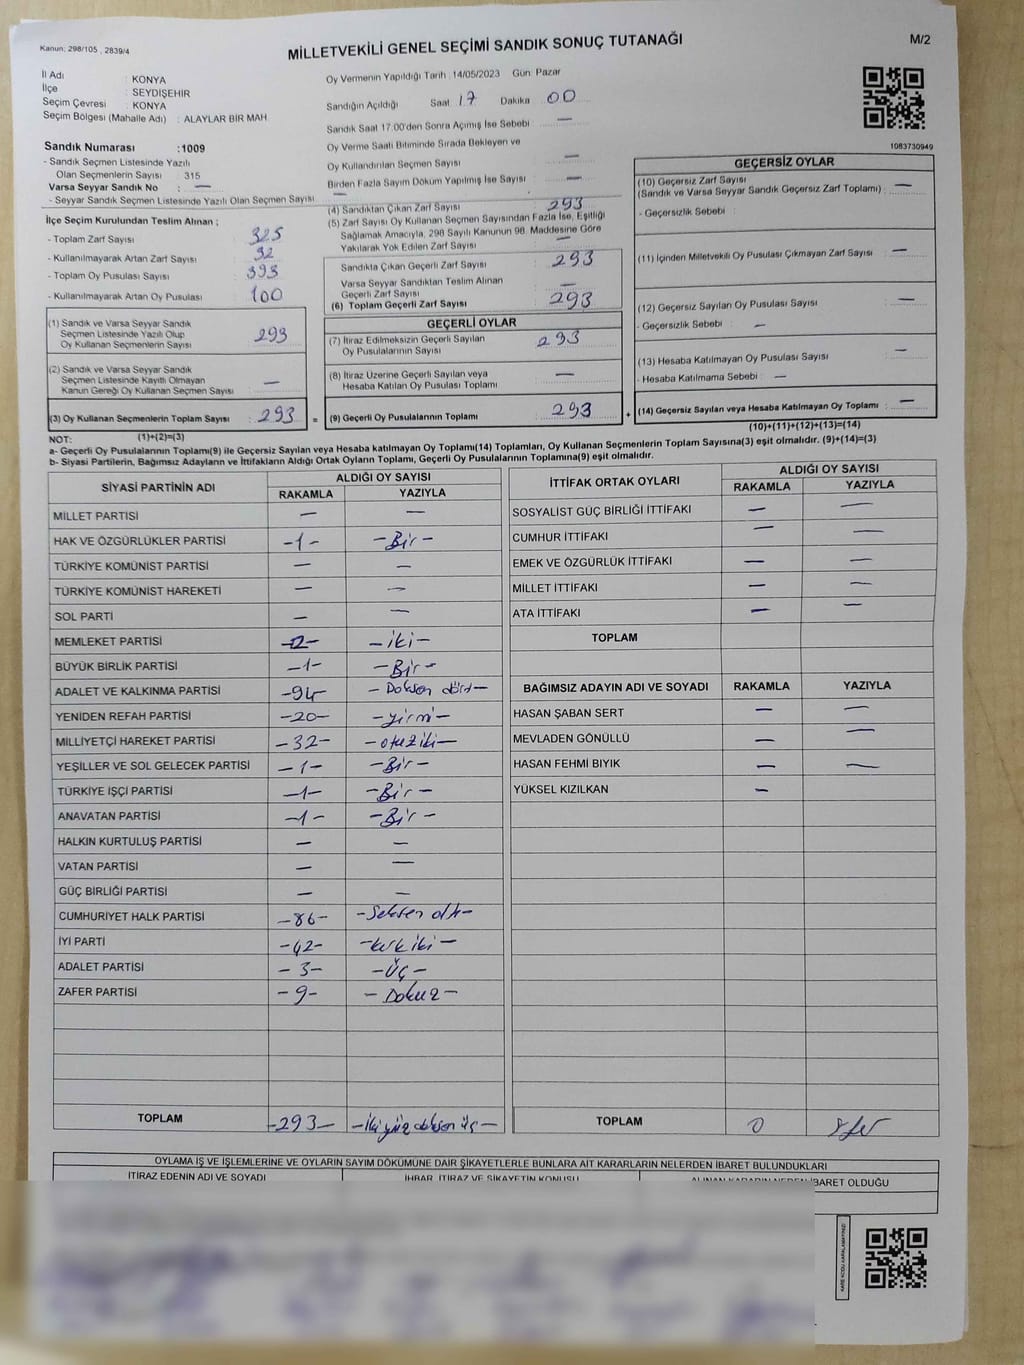 Kanun: 298/105 , 2839/4
MİLLETVEKİLİ GENEL SEÇİMİ SANDIK SONUÇ TUTANAĞI
M/2
İl Adı : KONYA
İlçe : SEYDİŞEHİR
Seçim Çevresi : KONYA
Seçim Bölgesi (Mahalle Adı) : ALAYLAR BİR MAH.
Oy Vermenin Yapıldığı Tarih :14/05/2023 Gün: Pazar
Sandığın Açıldığı Saat 17 Dakika 00
Sandık Saat 17:00'den Sonra Açımış İse Sebebi : —
Oy Verme Saati Bitiminde Sırada Bekleyen ve
Oy Kullandırılan Seçmen Sayısı : —
Birden Fazla Sayım Döküm Yapılmış İse Sayısı : —
1083730949
Sandık Numarası :1009
- Sandık Seçmen Listesinde Yazılı
Olan Seçmenlerin Sayısı : 315
Varsa Seyyar Sandık No : —
- Seyyar Sandık Seçmen Listesinde Yazılı Olan Seçmen Sayısı : —
İlçe Seçim Kurulundan Teslim Alınan ;
- Toplam Zarf Sayısı : 325
- Kullanılmayarak Artan Zarf Sayısı : 32
- Toplam Oy Pusulası Sayısı : 393
- Kullanılmayarak Artan Oy Pusulası : 100
(1) Sandık ve Varsa Seyyar Sandık
Seçmen Listesinde Yazılı Olup
Oy Kullanan Seçmenlerin Sayısı : 293
(2) Sandık ve Varsa Seyyar Sandık
Seçmen Listesinde Kayıtlı Olmayan
Kanun Gereği Oy Kullanan Seçmen Sayısı : —
(3) Oy Kullanan Seçmenlerin Toplam Sayısı : 293 =
(1)+(2)=(3)
(4) Sandıktan Çıkan Zarf Sayısı : 293
(5) Zarf Sayısı Oy Kullanan Seçmen Sayısından Fazla İse, Eşitliği
Sağlamak Amacıyla, 298 Sayılı Kanunun 98. Maddesine Göre
Yakılarak Yok Edilen Zarf Sayısı : —
Sandıkta Çıkan Geçerli Zarf Sayısı : 293
Varsa Seyyar Sandıktan Teslim Alınan
Geçerli Zarf Sayısı : —
(6) Toplam Geçerli Zarf Sayısı : 293
GEÇERLİ OYLAR
(7) İtiraz Edilmeksizin Geçerli Sayılan
Oy Pusulalarının Sayısı : 293
(8) İtiraz Üzerine Geçerli Sayılan veya
Hesaba Katılan Oy Pusulası Toplamı : —
(9) Geçerli Oy Pusulalarının Toplamı : 293 +
GEÇERSİZ OYLAR
(10) Geçersiz Zarf Sayısı
(Sandık ve Varsa Seyyar Sandık Geçersiz Zarf Toplamı) : —
- Geçersizlik Sebebi :
(11) İçinden Milletvekili Oy Pusulası Çıkmayan Zarf Sayısı : —
(12) Geçersiz Sayılan Oy Pusulası Sayısı : —
- Geçersizlik Sebebi : —
(13) Hesaba Katılmayan Oy Pusulası Sayısı : —
- Hesaba Katılmama Sebebi : —
(14) Geçersiz Sayılan veya Hesaba Katılmayan Oy Toplamı : —
(10)+(11)+(12)+(13)=(14)
NOT:
a- Geçerli Oy Pusulalarının Toplamı(9) ile Geçersiz Sayılan veya Hesaba katılmayan Oy Toplamı(14) Toplamları, Oy Kullanan Seçmenlerin Toplam Sayısına(3) eşit olmalıdır. (9)+(14)=(3)
b- Siyasi Partilerin, Bağımsız Adayların ve İttifakların Aldığı Ortak Oyların Toplamı, Geçerli Oy Pusulalarının Toplamına(9) eşit olmalıdır.
SİYASİ PARTİNİN ADI ALDIĞI OY SAYISI
RAKAMLA YAZIYLA
MİLLET PARTİSİ — —
HAK VE ÖZGÜRLÜKLER PARTİSİ -1- -Bir-
TÜRKİYE KOMÜNİST PARTİSİ — —
TÜRKİYE KOMÜNİST HAREKETİ — —
SOL PARTİ — —
MEMLEKET PARTİSİ -2- -iki-
BÜYÜK BİRLİK PARTİSİ -1- -Bir-
ADALET VE KALKINMA PARTİSİ -94- -Doksan dört-
YENİDEN REFAH PARTİSİ -20- -yirmi-
MİLLİYETÇİ HAREKET PARTİSİ -32- -otuziki-
YEŞİLLER VE SOL GELECEK PARTİSİ -1- -Bir-
TÜRKİYE İŞÇİ PARTİSİ -1- -Bir-
ANAVATAN PARTİSİ -1- -Bir-
HALKIN KURTULUŞ PARTİSİ — —
VATAN PARTİSİ — —
GÜÇ BİRLİĞİ PARTİSİ — —
CUMHURİYET HALK PARTİSİ -86- -Seksen altı-
İYİ PARTİ -42- -kırkiki-
ADALET PARTİSİ -3- -Üç-
ZAFER PARTİSİ -9- -Dokuz-
TOPLAM -293- -ikiyüz doksan üç-
İTTİFAK ORTAK OYLARI ALDIĞI OY SAYISI
RAKAMLA YAZIYLA
SOSYALİST GÜÇ BİRLİĞİ İTTİFAKI — —
CUMHUR İTTİFAKI — —
EMEK VE ÖZGÜRLÜK İTTİFAKI — —
MİLLET İTTİFAKI — —
ATA İTTİFAKI — —
TOPLAM
BAĞIMSIZ ADAYIN ADI VE SOYADI RAKAMLA YAZIYLA
HASAN ŞABAN SERT — —
MEVLADEN GÖNÜLLÜ — —
HASAN FEHMİ BIYIK — —
YÜKSEL KIZILKAN —
TOPLAM 0 sıfır
OYLAMA İŞ VE İŞLEMLERİNE VE OYLARIN SAYIM DÖKÜMÜNE DAİR ŞİKAYETLERLE BUNLARA AİT KARARLARIN NELERDEN İBARET BULUNDUKLARI
İTİRAZ EDENİN ADI VE SOYADI İHBAR, İTİRAZ VE ŞİKAYETİN KONUSU ALINAN KARARIN NEDEN İBARET OLDUĞU
KARE KODU KARALAMAYINIZ!